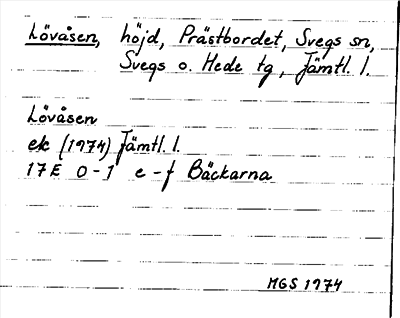 Lövåsen, höjd, Prästbordet, Svegs sn,
Svegs o. Hede tg, Jämtl. l.
Lövåsen
ek (1974) Jämtl. l.
17E 0-1 e-f Bäckarna
MGS 1974